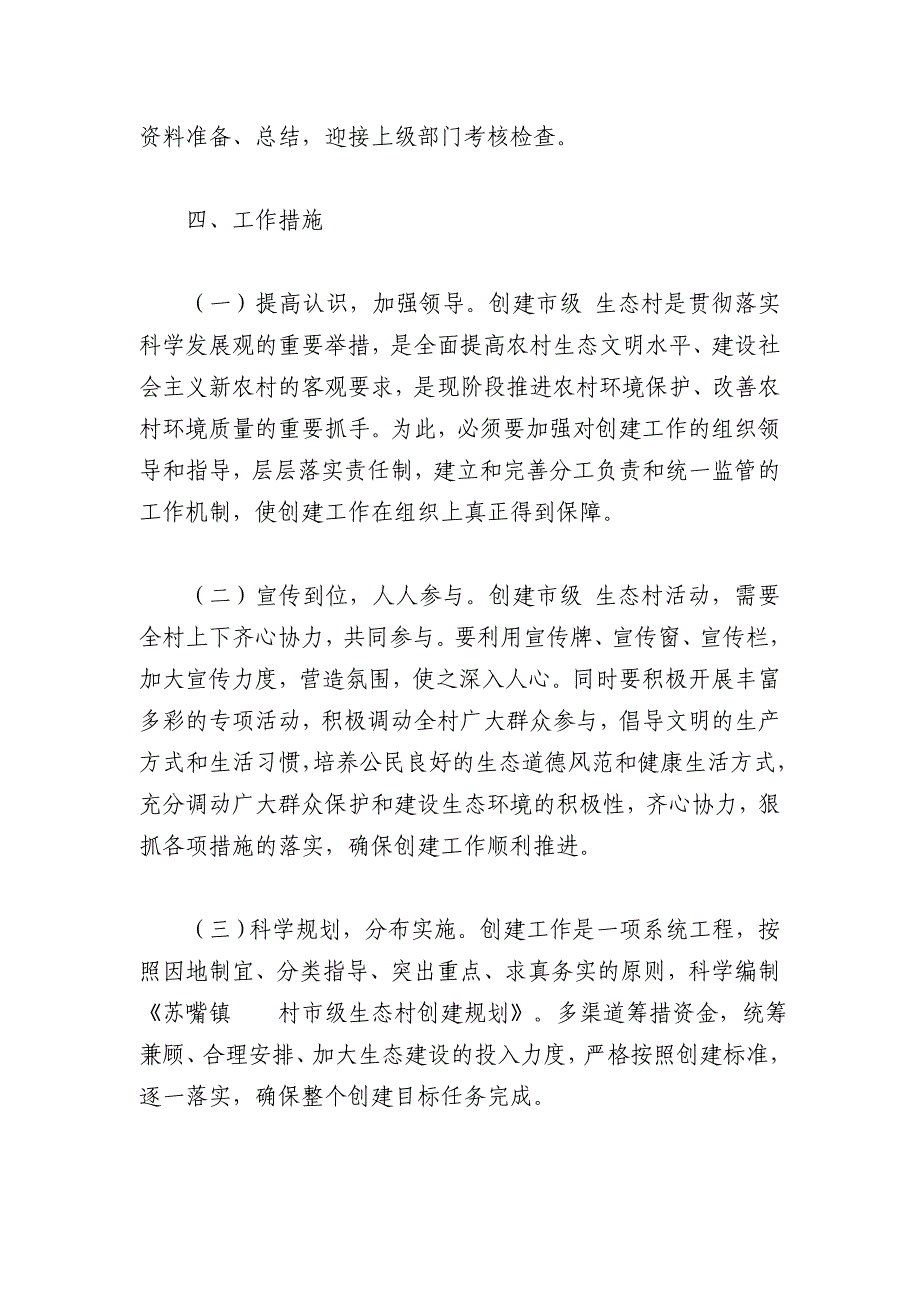 资料准备、总结，迎接上级部门考核检查。
四、工作措施
（一）提高认识，加强领导。创建市级 生态村是贯彻落实
科学发展观的重要举措，是全面提高农村生态文明水平、建设社
会主义新农村的客观要求，是现阶段推进农村环境保护、改善农
村环境质量的重要抓手。为此，必须要加强对创建工作的组织领
导和指导，层层落实责任制，建立和完善分工负责和统一监管的
工作机制，使创建工作在组织上真正得到保障。
（二）宣传到位，人人参与。创建市级 生态村活动，需要
全村上下齐心协力，共同参与。要利用宣传牌、宣传窗、宣传栏，
加大宣传力度，营造氛围，使之深入人心。同时要积极开展丰富
多彩的专项活动，积极调动全村广大群众参与，倡导文明的生产
方式和生活习惯，培养公民良好的生态道德风范和健康生活方式，
充分调动广大群众保护和建设生态环境的积极性，齐心协力，狠
抓各项措施的落实，确保创建工作顺利推进。
（三）科学规划，分布实施。创建工作是一项系统工程，按
照因地制宜、分类指导、突出重点、求真务实的原则，科学编制
《苏嘴镇　　村市级生态村创建规划》。多渠道筹措资金，统筹
兼顾、合理安排、加大生态建设的投入力度，严格按照创建标准，
逐一落实，确保整个创建目标任务完成。